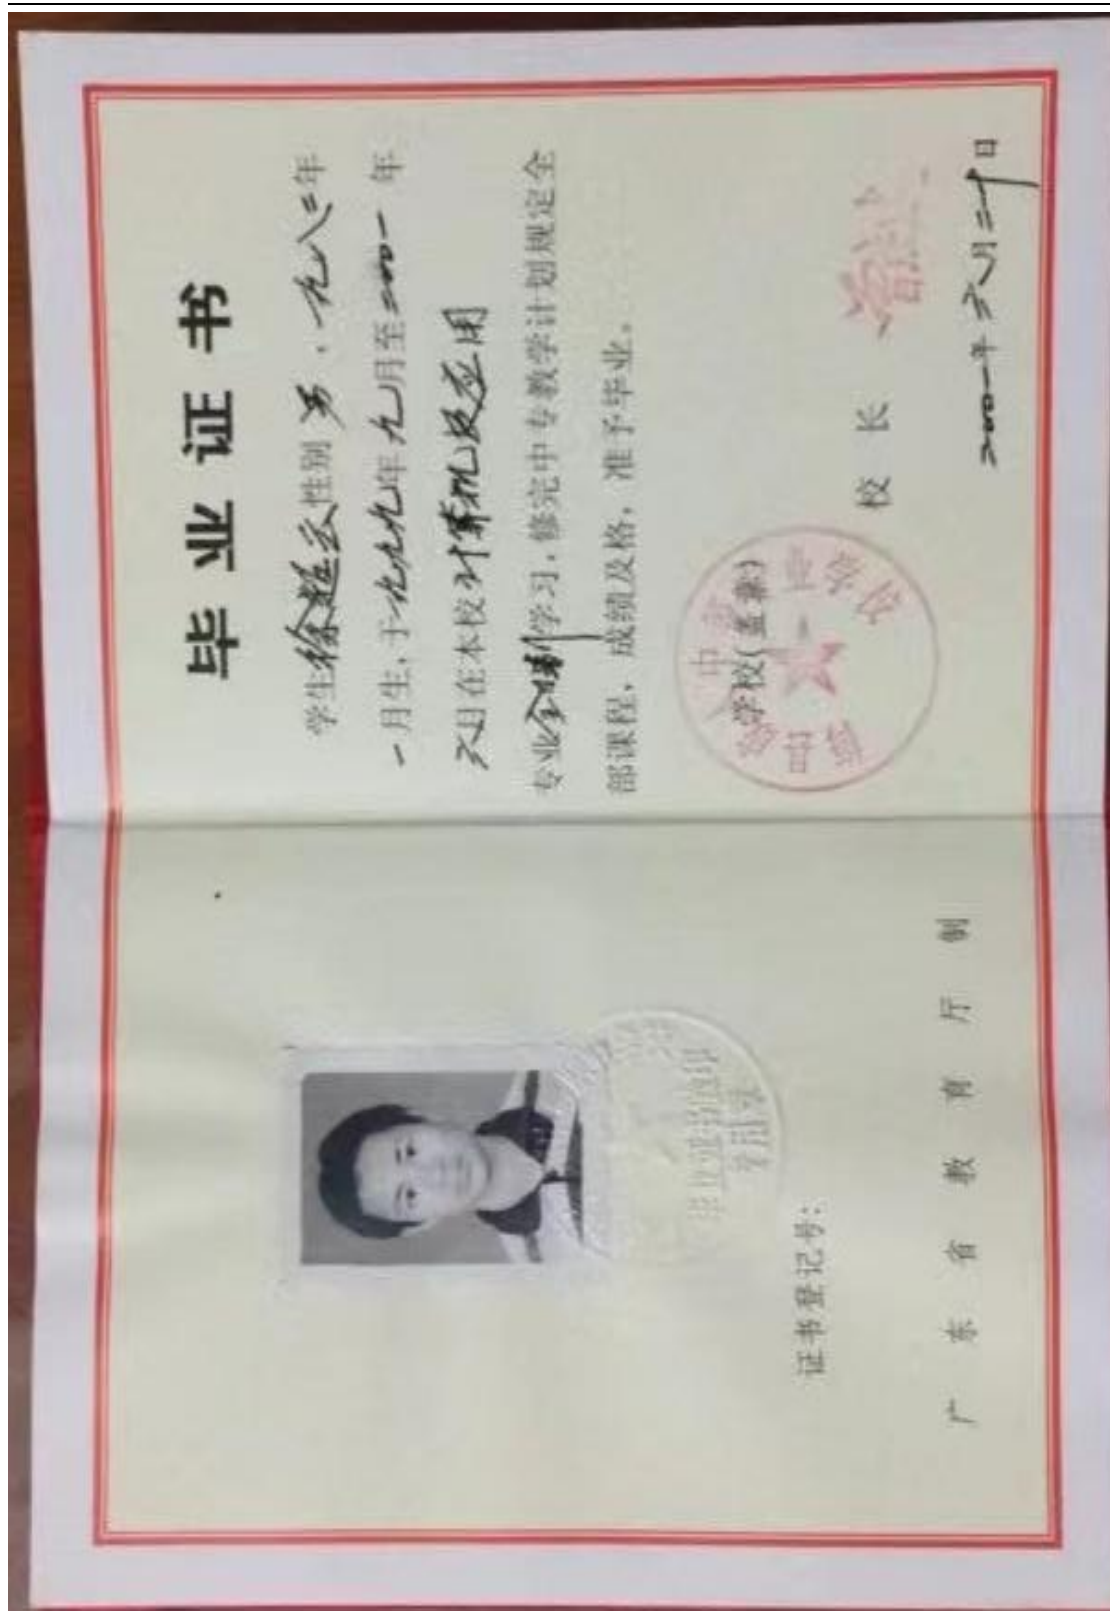 毕业证书
学生徐超云性别男,一九八二年
一月生,于一九九九年九月至二〇〇一年
六月在本校计算机及应用
专业全日制学习,修完中专教学计划规定全
部课程,成绩及格,准予毕业。
学校(盖章)
校长
二〇〇一年六月二十日
毕业证书验印
专用章
证书登记号:
广东省教育厅制